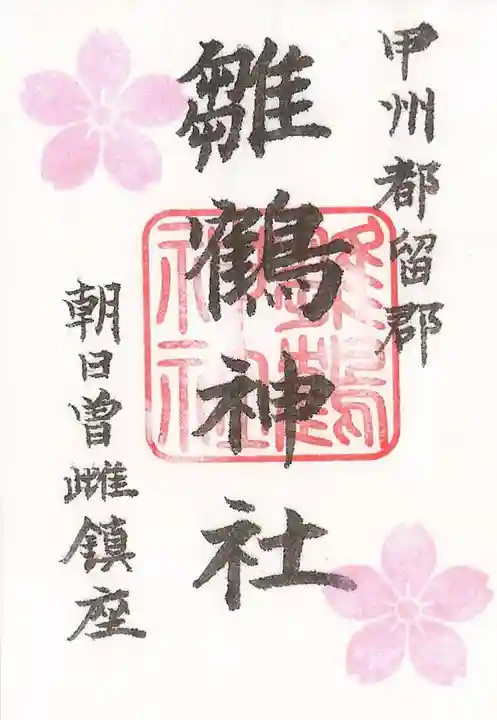 甲州都留郡
雛鶴神社
朝日曽雌鎮座